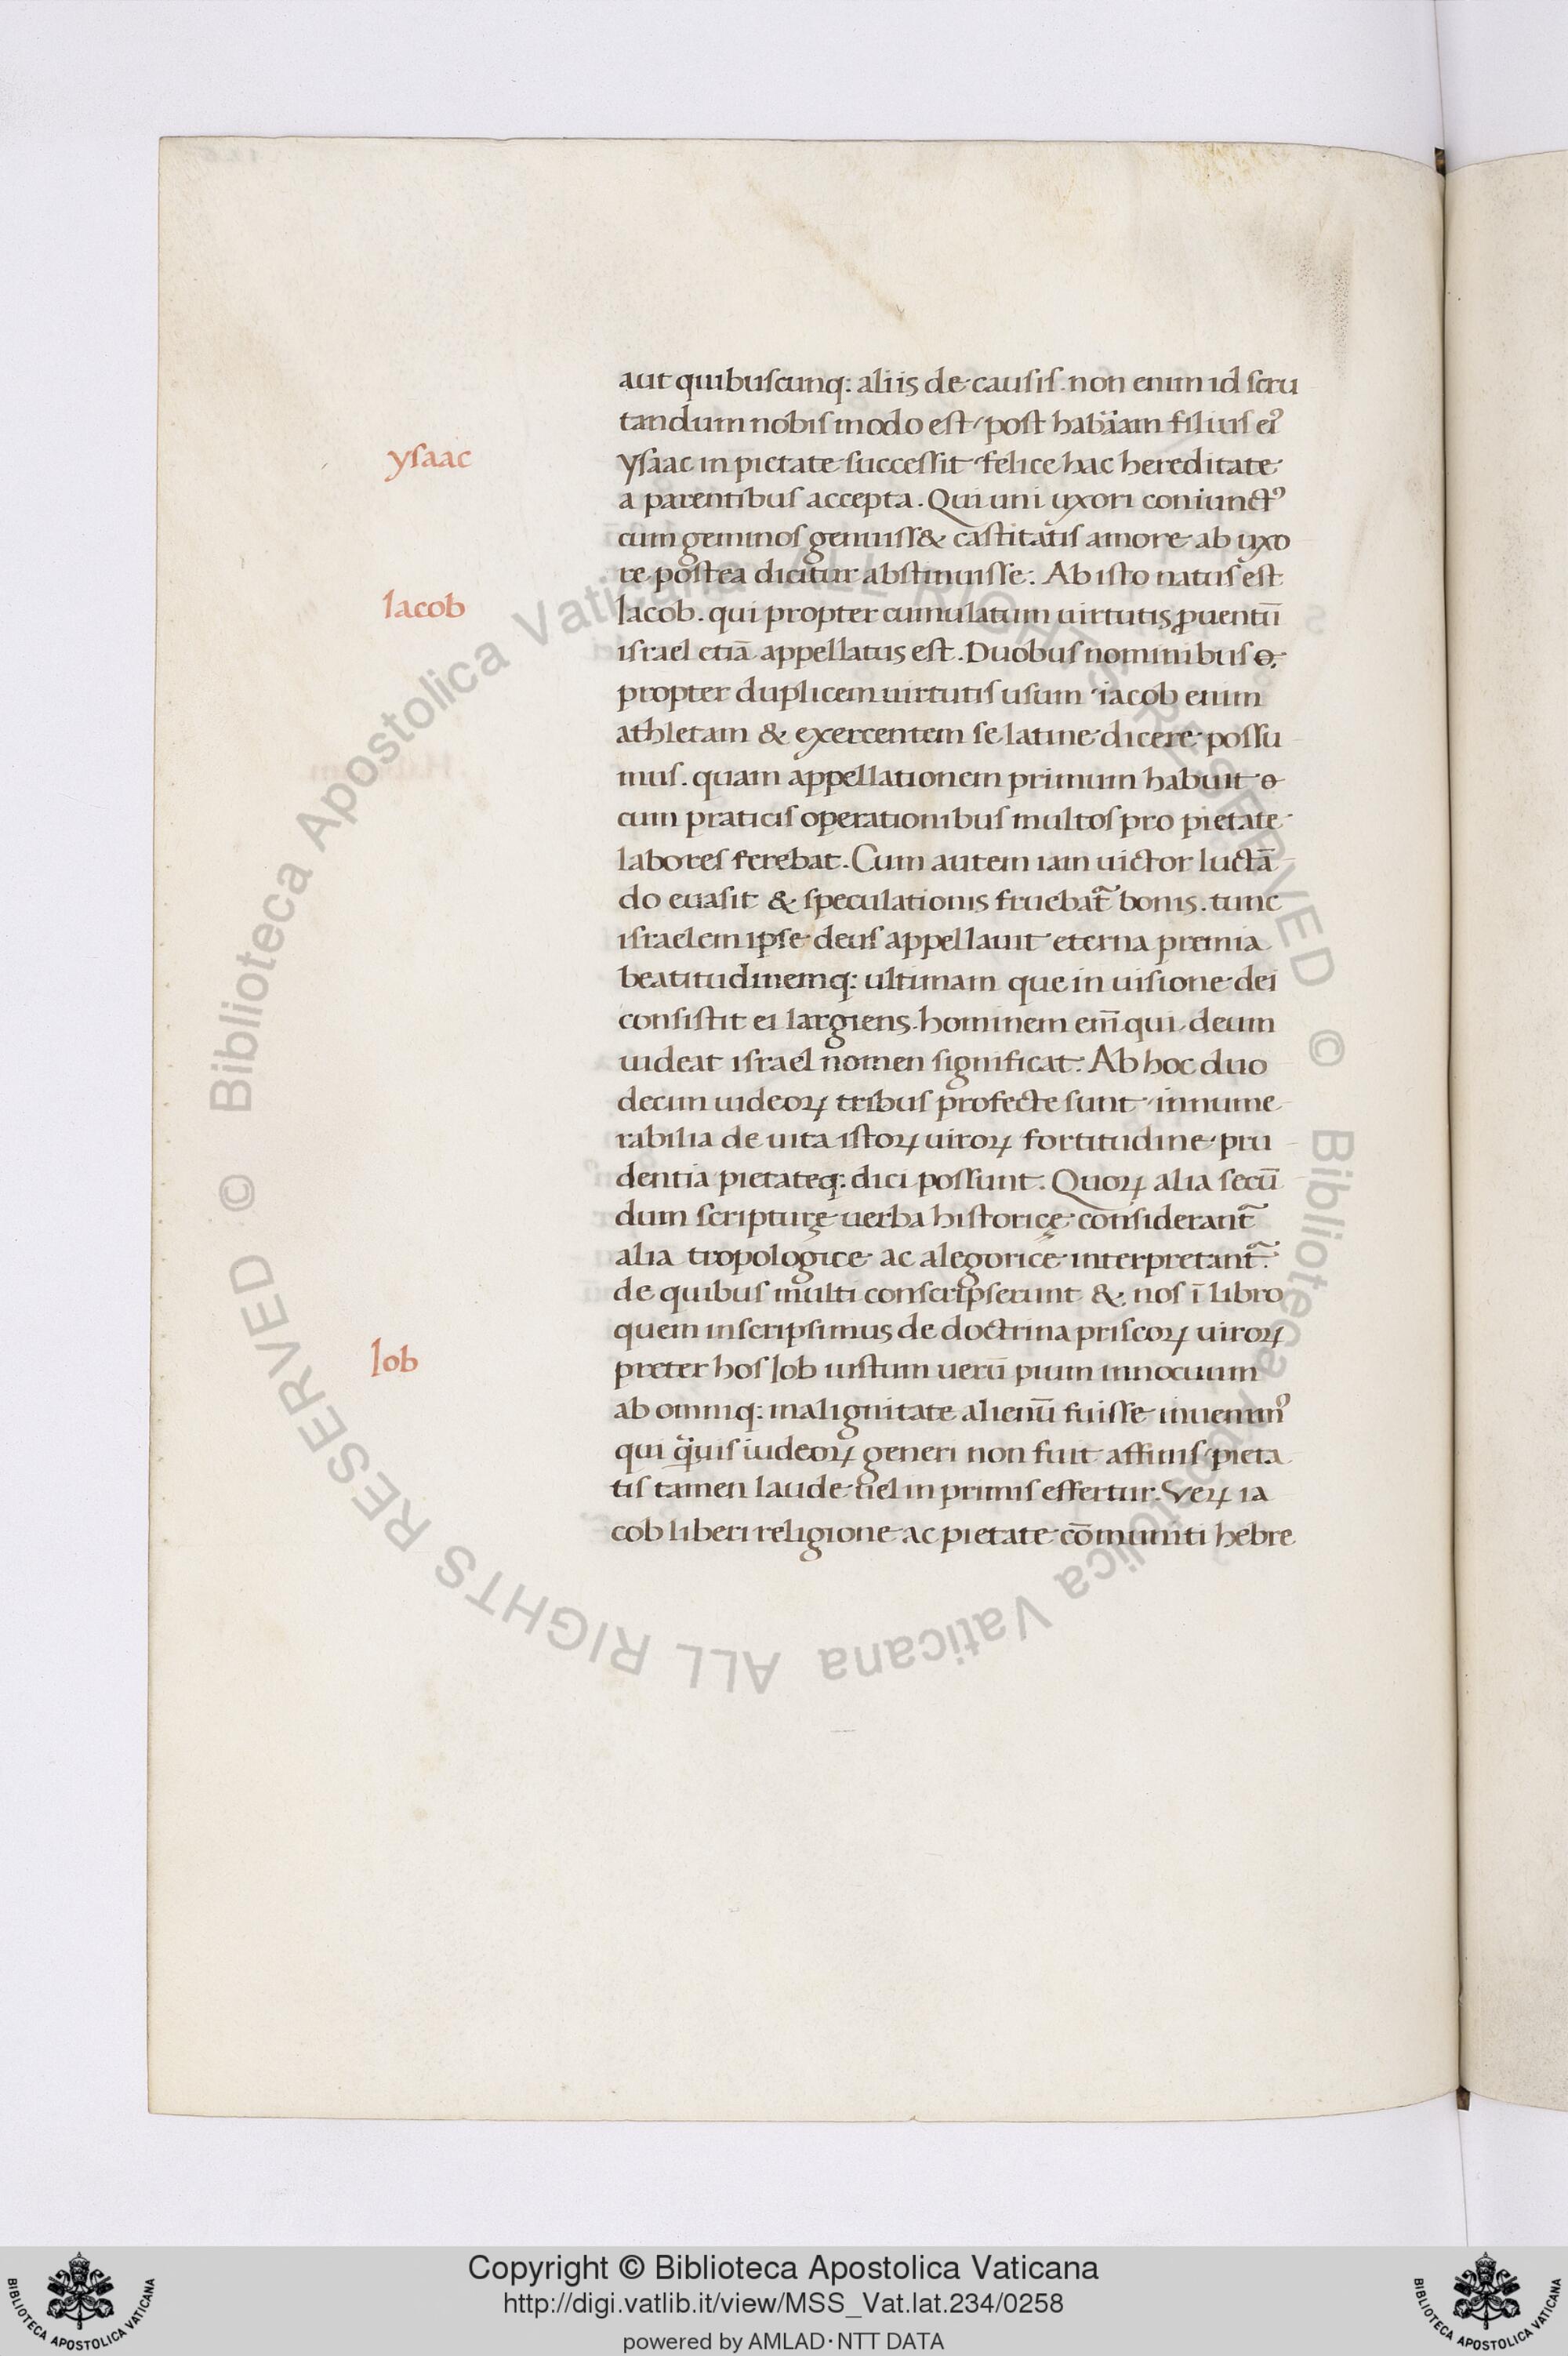 aut quibuscunq; aliis de causis. non enim id scru
tandum nobis modo est, post Filius ei᾽
ysaac
ysaac in pietate successit felice hac hereditate
a parentibus accepta. Qui uni uxori coniunct᾽
cum geminos genuiss& castitatis amore ab uxo
re postea dicitur abstinuisse. Ab isto natus est
Iacob
Iacob. qui propter cumulatum uirtutis ꝓuentū
israel etiā appellatus est. Duobus nominibus
propter duplicem uirtutis usum iacob enim
athletam & exercentem se latine dicere possu
mus. quam appellationem primum habuit
cum praticis operationibus multos pro pietate
labores ferebat. Cum autem iam uictor luctā
do euasit & speculationis fruebat᷑ bonis. tunc
israelem ipse deus appellauit eterna premia
beatitudinemq; ultimam que in uisione dei
consistit ei largiens. hominem em̄ qui deum
uideat israel nomen significat. Ab hoc duo
decim iudeoꝝ tribus profecte sunt innume
rabilia de uita istoꝝ uiroꝝ fortitudine pru
dentia pietateq; dici possunt. Quoꝝ alia secū
dum scripturę uerba historicę considerant᷑
alia tropologice ac alegorice interpretant᷑.
de quibus multi conscripserunt & nos ī libro
quem inscripsimus de doctrina priscoꝝ uiroꝝ
Iob
preter hos Iob iustum uerū pium innocuum
ab omniq; malignitate alienū fuisse inuenim᾽
qui q̄uis iudeoꝝ generi non fuit affinis pieta
tis tamen laude uel in primis effertur. Veꝝ ia
cob liberi religione ac pietate cōmuniti hebre
Copyright © Biblioteca Apostolica Vaticana
http://digi.vatlib.it/view/MSS_Vat.lat.234/0258
powered by AMLAD·NTT DATA
BIBLIOTECA APOSTOLICA VATICANA
BIBLIOTECA APOSTOLICA VATICANA
© Biblioteca Apostolica Vaticana ALL RIGHTS RESERVED © Biblioteca Apostolica Vaticana ALL RIGHTS RESERVED